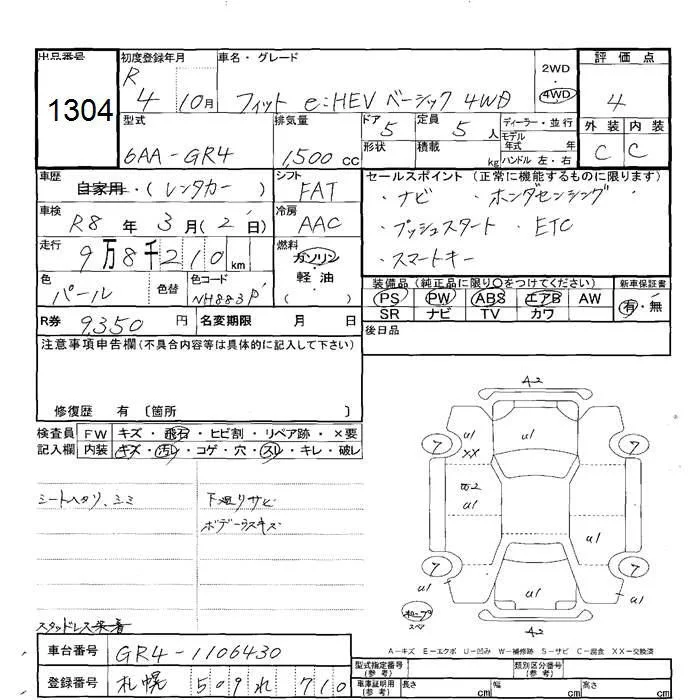 出品番号
1304
初度登録年月
R
4 10月
車名・グレード
フィット e:HEV ベーシック 4WD
2WD
・
4WD
評価点
4
外装 内装
C C
型式
6AA-GR4
排気量
1,500 cc
ドア 5
形状
定員 5 人
積載 kg
ディーラー・並行
モデル年式 年
ハンドル 左・右
車歴
自家用・(レンタカー)
シフト
FAT
セールスポイント (正常に機能するものに限ります)
・ナビ ・ホンダセンシング
・プッシュスタート ・ETC
・スマートキー
車検
R8 年 3 月(2 日)
冷房
AAC
走行
9万8千210 km
燃料
ガソリン
軽油
( )
色
パール
色替
色コード
NH883P
装備品(純正品に限り○をつけてください)
PS PW ABS エアB AW
SR ナビ TV カワ
新車保証書
有・無
R券 9,350 円
名変期限 月 日
後日品
注意事項申告欄(不具合内容等は具体的に記入して下さい)
修復歴 有 〔箇所 〕
検査員記入欄
FW キズ・飛石・ヒビ割・リペア跡・×要
内装 キズ・汚レ・コゲ・穴・スレ・キレ・破レ
シートヘタリ、シミ
下廻りサビ
ボデーラスキズ
スタッドレス装着
A2
U1
U1
XX
7
7
U1
U1
U1
7
7
U1
U1
U1
スペア
A2
A-キズ E-エクボ U-凹み W-補修跡 S-サビ C-腐食 XX-交換済
車台番号 GR4-1106430
登録番号 札幌 509 れ 710
型式指定番号(参考)
類別区分番号(参考)
車庫証明用(参考) 長さ cm 幅 cm 高さ cm